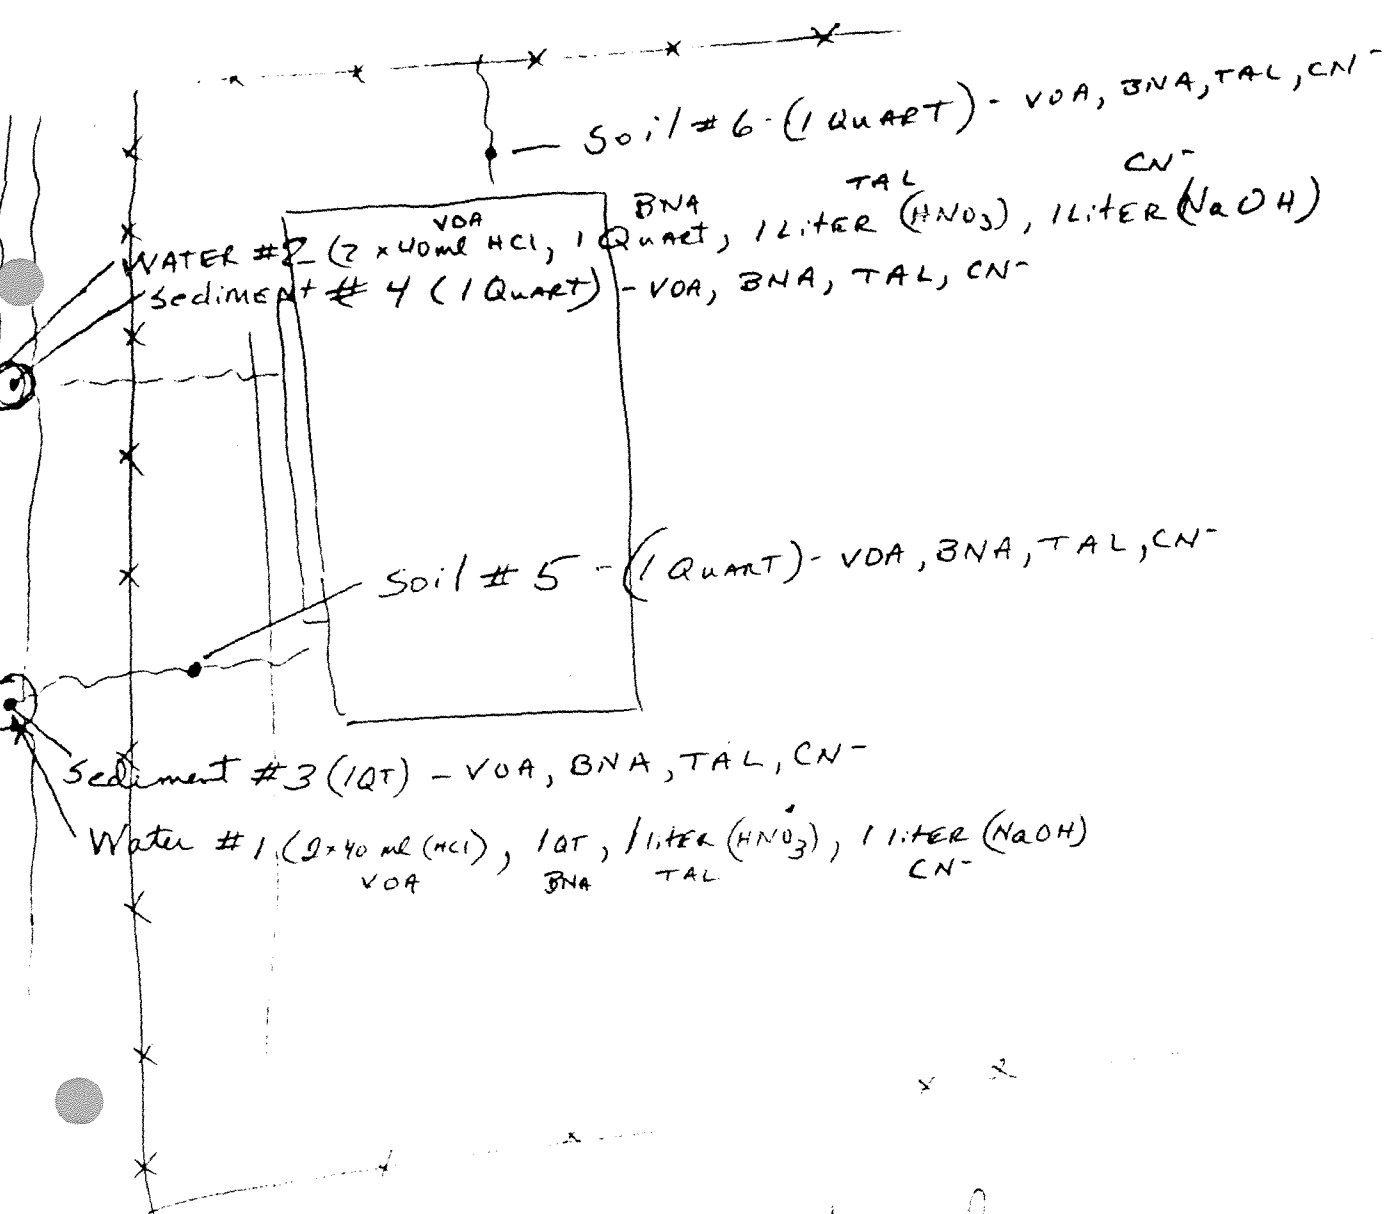 Soil # 6 - (1 QUART) - VOA, BNA, TAL, CN⁻
VOA BNA TAL CN⁻
WATER #2 (2 x 40ml HCl, 1 Quart, 1 LitER (HNO₃), 1 LitER (NaOH)
Sediment # 4 (1 QuART) - VOA, BNA, TAL, CN⁻
Soil # 5 - (1 QuART) - VOA, BNA, TAL, CN⁻
Sediment #3 (1QT) - VOA, BNA, TAL, CN⁻
Water #1 (2x40 ml (HCl), 1QT, 1 litER (HNO₃), 1 litER (NaOH)
VOA BNA TAL CN⁻